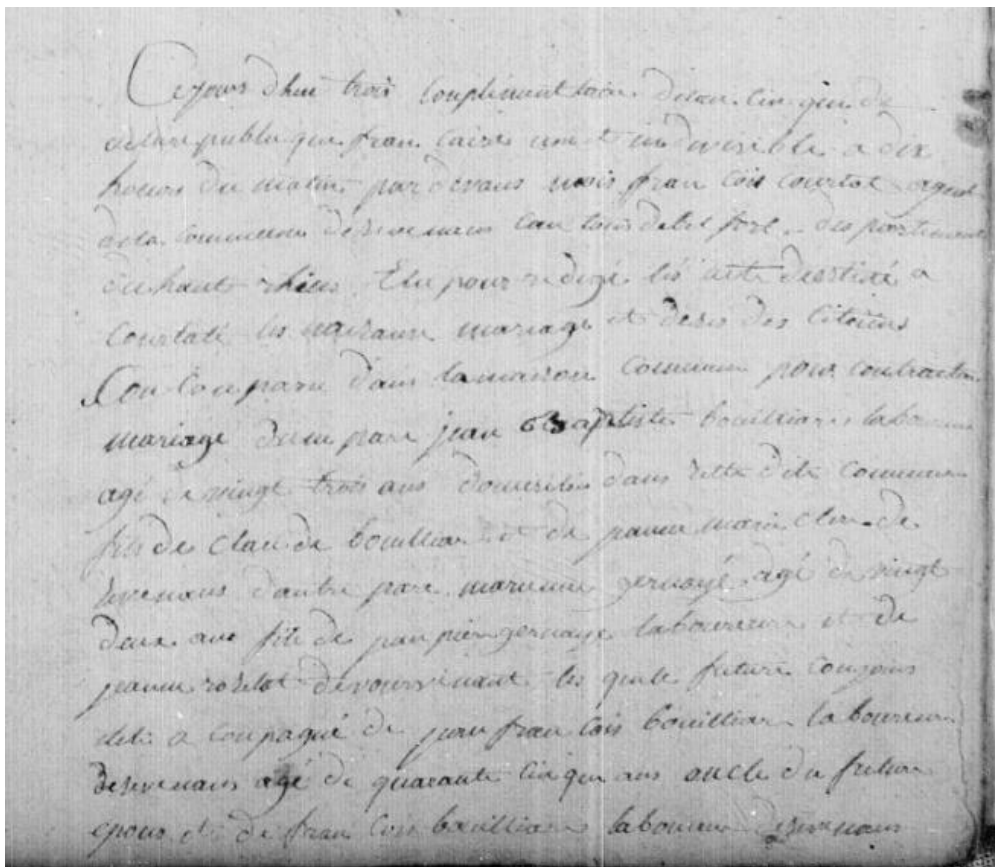 Cejourdhui trois complementaire delan cinque de
delarepublique fran caise une et indivisible a dix
heures du matin pardevans mois fran cois courtot agent
dela commune desevenans can tons debelfort departement
du haut rhein Elu pour redigé les acte destiné a
Constaté les naisance mariage et deses des Citoiens
Son Comparu dans lamaison Commune pour contracter
mariage dune pare jean Baptiste bouilliar laboureur
agé de vingt trois ans domicilié dans cette dite Commune
fils de Claude bouilliar et de jeanne marie de
sevenans dautre pare marianne gervaye agé de vingt
deux ans file de jean pier gervaye laboureure et de
jeanne roselot devourvenant les quele future conjoins
ete a conpagné de jean fran cois bouilliar laboureur
desevenans agé de quarante cinque ans oncle du future
epous et de fran cois bouilliar laboureur desevenans